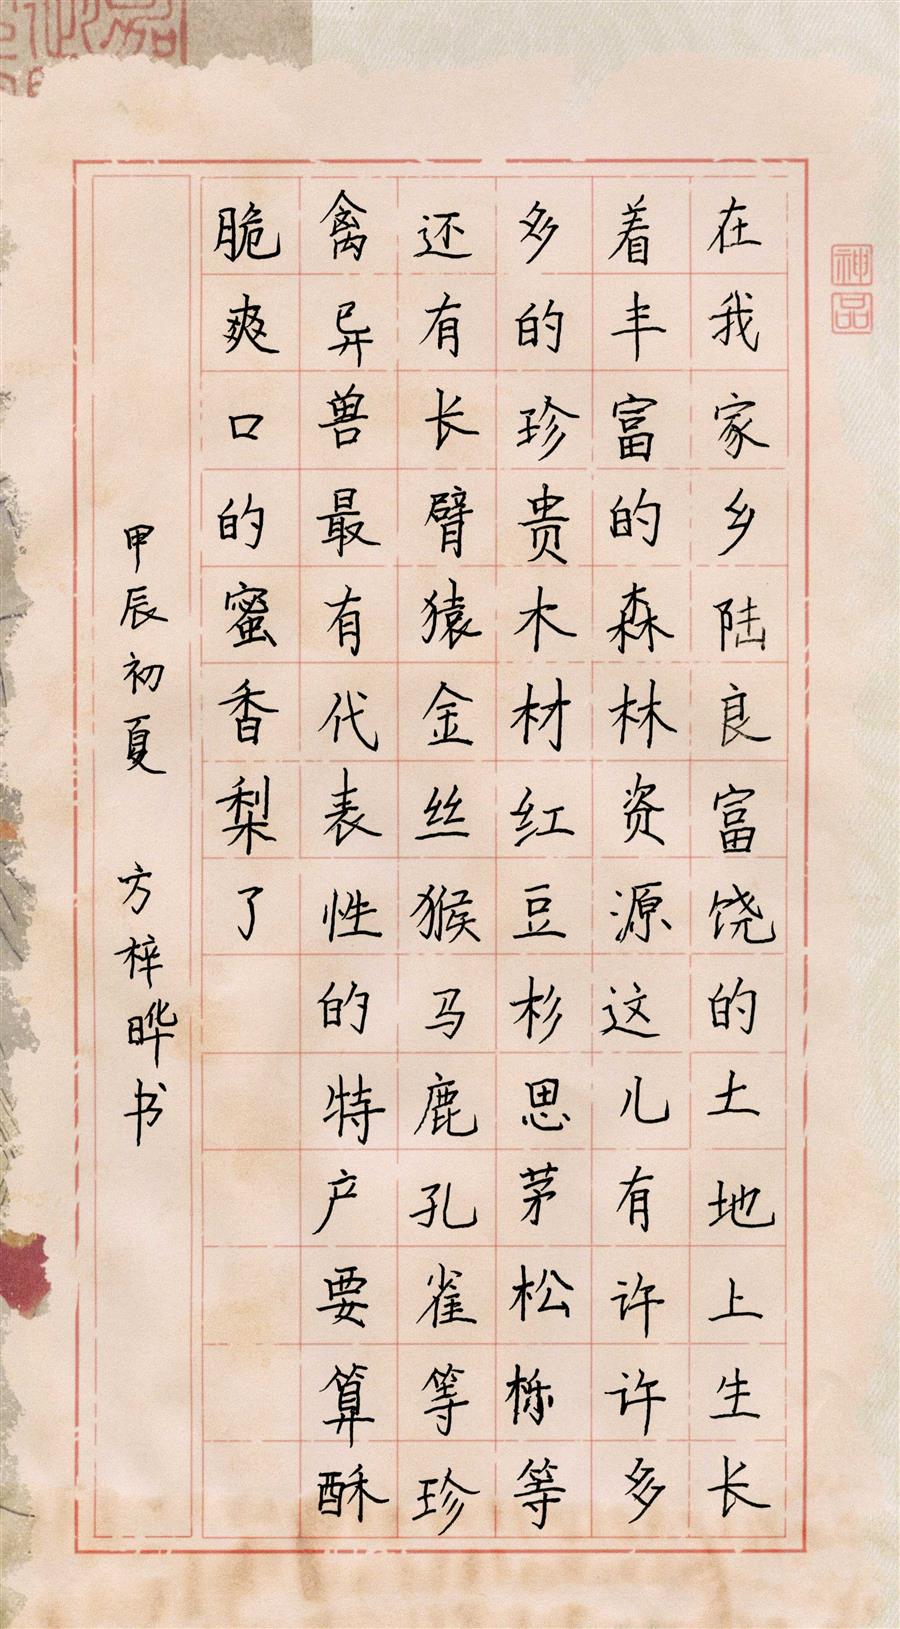 在我家乡陆良富饶的土地上生长
着丰富的森林资源这儿有许许多
多的珍贵木材红豆杉思茅松栎等
还有长臂猿金丝猴马鹿孔雀等珍
禽异兽最有代表性的特产要算酥
脆爽口的蜜香梨了
甲辰初夏 方梓晔书
神品